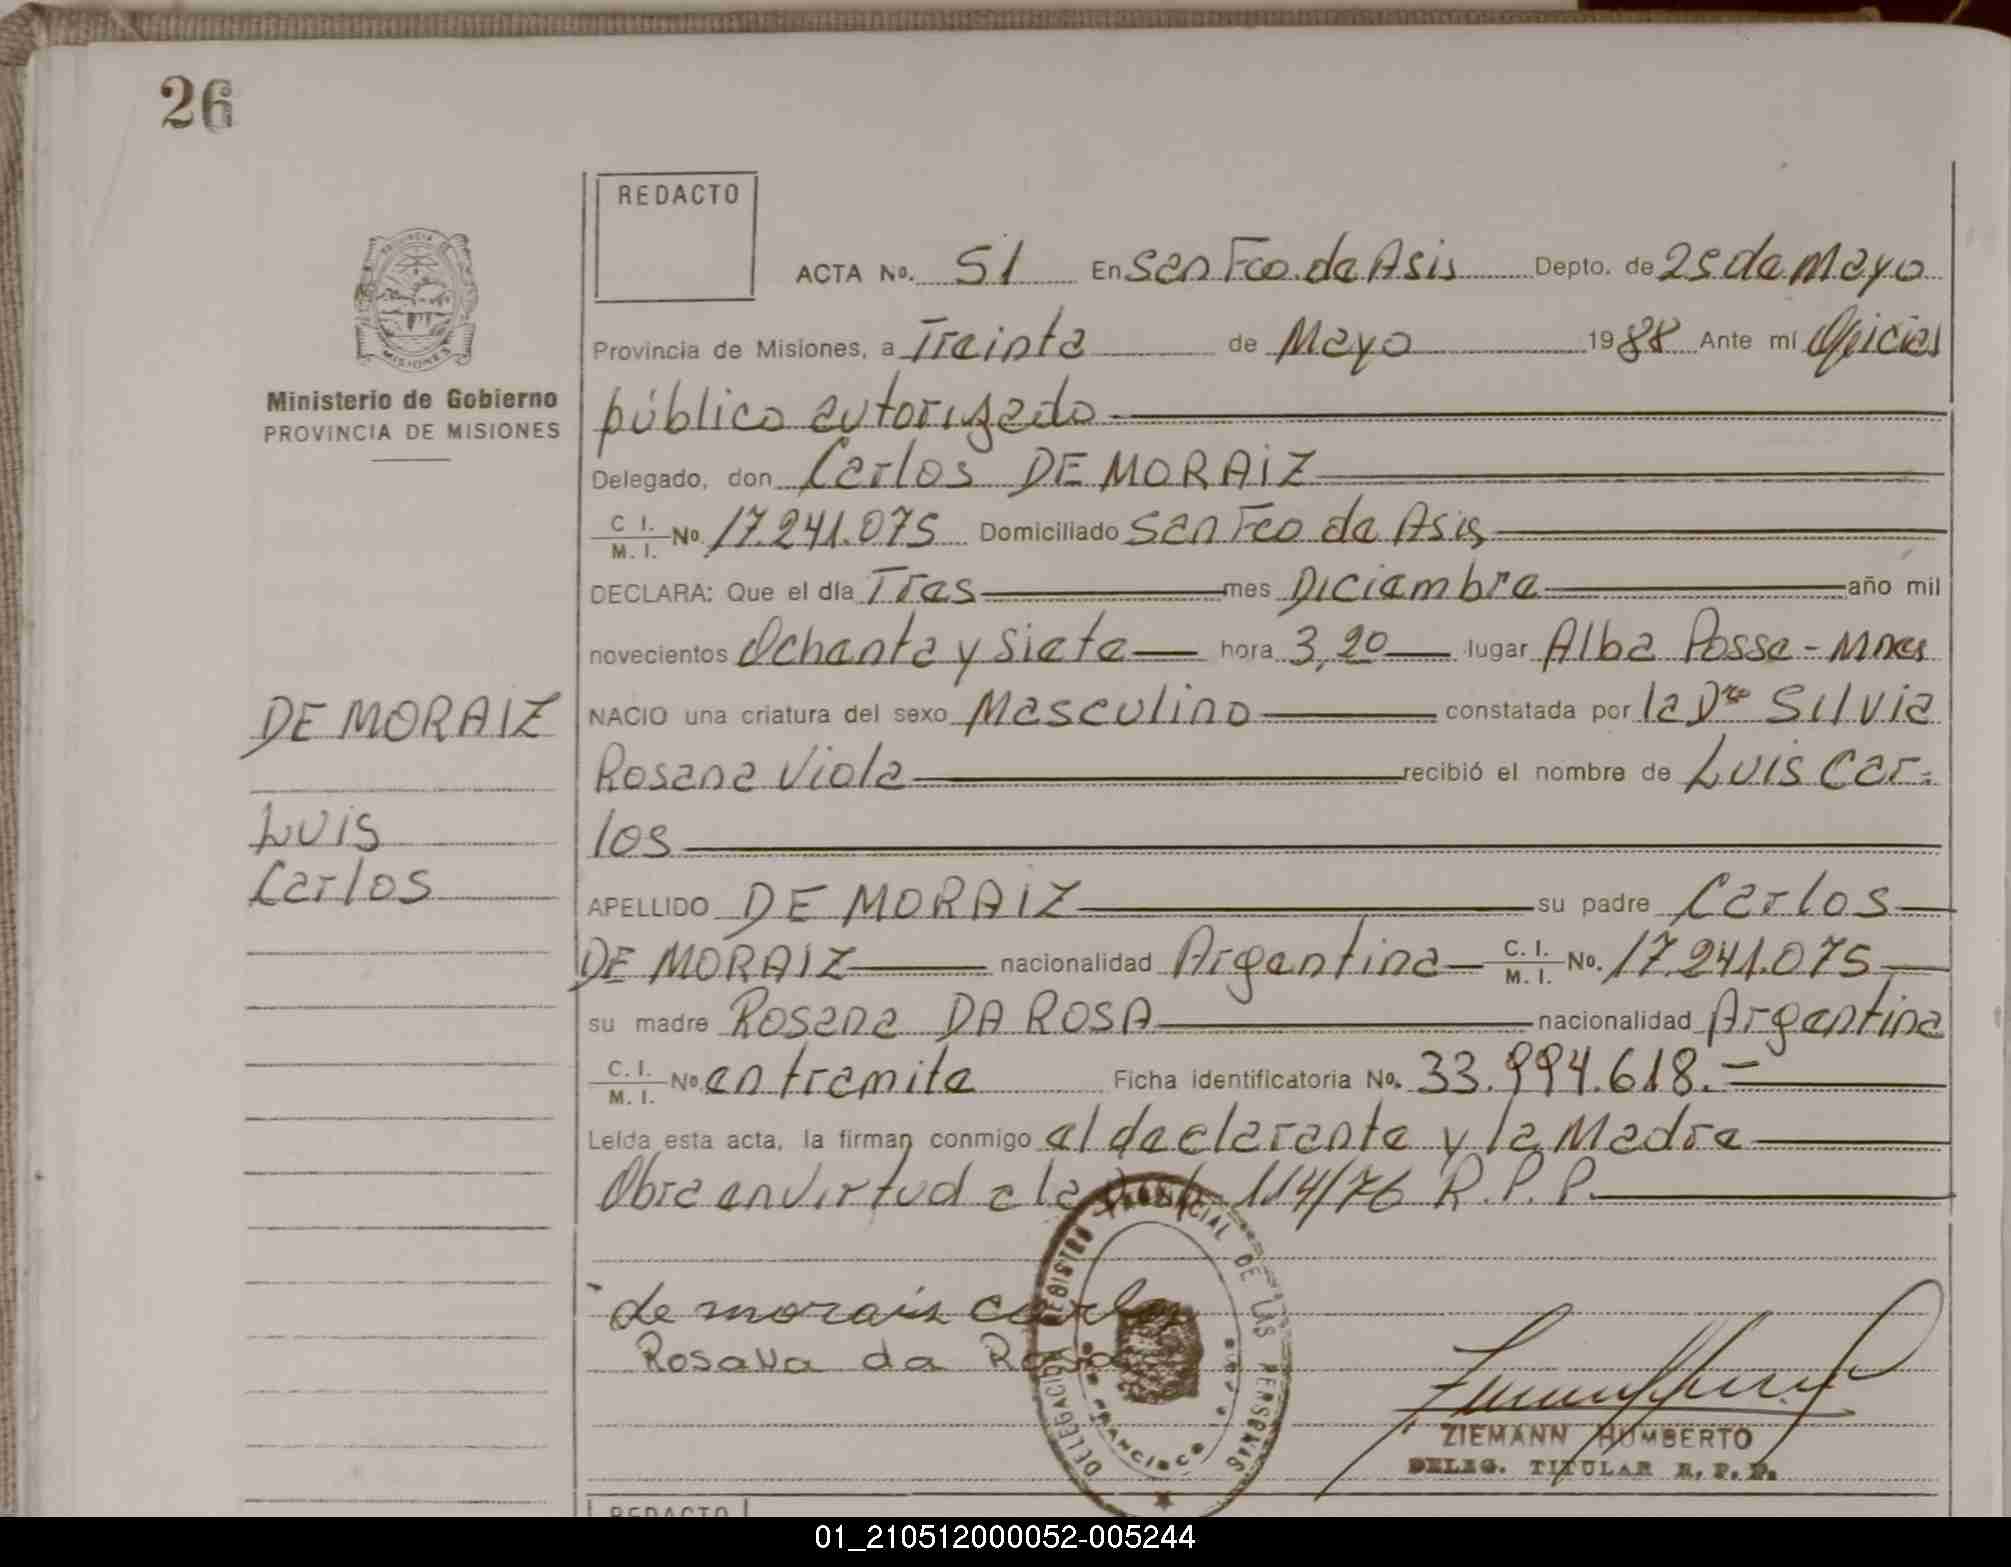 26
REDACTO
PROVINCIA DE
MISIONES
Ministerio de Gobierno
PROVINCIA DE MISIONES
ACTA No. 51 En San Fco. de Asis Depto. de 25 de Mayo
Provincia de Misiones, a Treinta de Mayo 1988 Ante mí Oficial
público autorizado
Delegado, don Carlos DE MORAIZ
C I. M. I. No. 17.241.075 Domiciliado San Fco de Asis
DECLARA: Que el día Tres mes Diciembre año mil
novecientos Ochenta y Siete hora 3,20 lugar Alba Posse - Mnes
NACIO una criatura del sexo Masculino constatada por la Dra Silvia
Rosana Viola recibió el nombre de Luis Car-
los
DE MORAIZ
Luis
Carlos
APELLIDO DE MORAIZ su padre Carlos
DE MORAIZ nacionalidad Argentina C. I. M. I. No. 17.241.075
su madre Rosana DA ROSA nacionalidad Argentina
C. I. M. I. No. en tramite Ficha identificatoria No. 33.994.618.-
Leída esta acta, la firman conmigo el declarante y la Madre
Obra en virtud a la 114/76 R.P.P.
de morais carlos
Rosana da Rosa
DELEGACION REGISTRO PROVINCIAL DE LAS PERSONAS
FRANCISCO
ZIEMANN HUMBERTO
DELEG. TITULAR R. P. P.
REDACTO
01_210512000052-005244